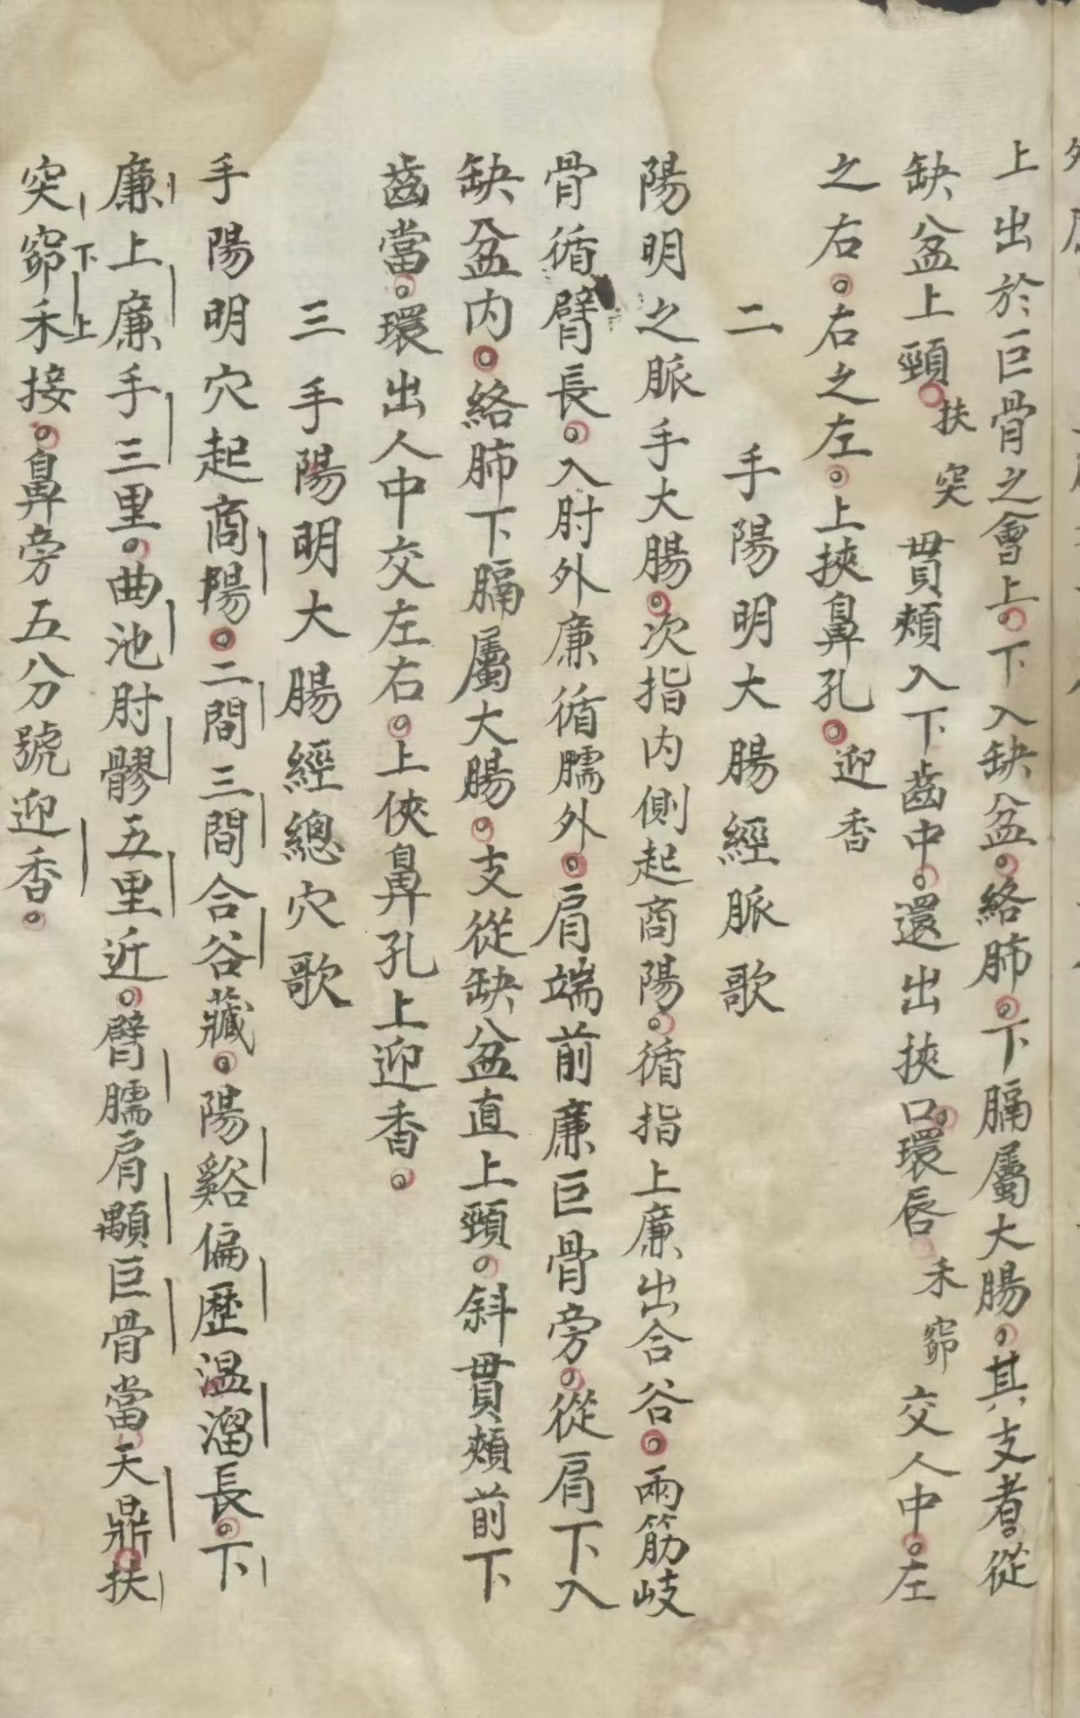 上出於巨骨之會上。下入缺盆。絡肺。下膈屬大腸。其支者。從
缺盆上頸。扶突貫頰入下齒中。還出挾口。環唇。禾窌交人中。左
之右。右之左。上挾鼻孔。迎香
二 手陽明大腸經脈歌
陽明之脈手大腸。次指内側起商陽。循指上廉出合谷。兩筋岐
骨循臂長。入肘外廉循臑外。肩端前廉巨骨旁。從肩下入
缺盆内。絡肺下膈屬大腸。支從缺盆直上頸。斜貫頰前下
齒當。環出人中交左右。上俠鼻孔上迎香。
三 手陽明大腸經總穴歌
手陽明穴起商陽。二間三間合谷藏。陽谿偏歷温溜長。下
廉上廉手三里。曲池肘髎五里近。臂臑肩顒巨骨當。天鼎扶
突窌下禾上接。鼻旁五分號迎香。